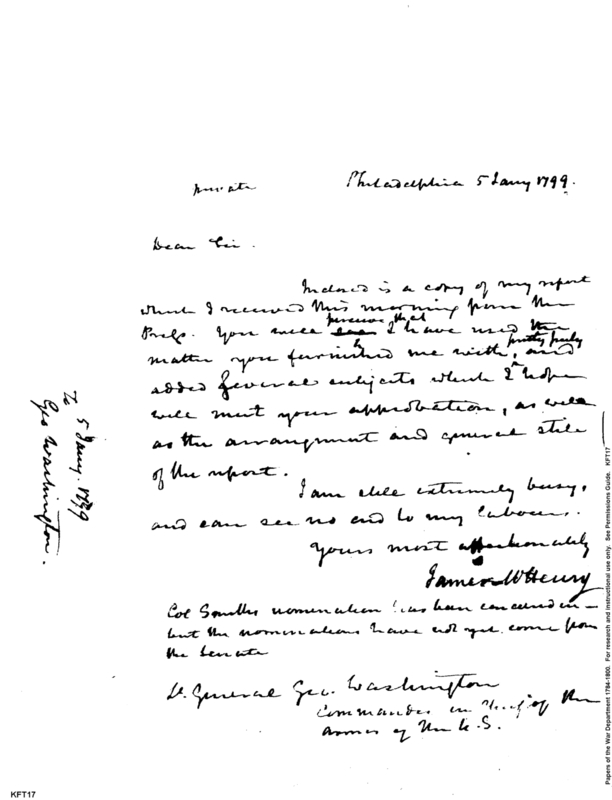 private
Philadelphia 5 Jany 1799.
Dear Sir.
Inclosed is a copy of my report
which I received this morning from the
Press. You will see perceive that I have used the
matter you furnished me with, pretty freely and
added several subjects which I hope
will meet your approbation, as well
as the arrangement and general stile
of the report.
I am still extremely busy,
and can see no end to my labours.
Yours most affectionately
James McHenry
Col Smiths nomination has been concurred in—
but the nominations have not yet come from
the Senate
Lt. General Geo. Washington
Commander in Chief of the
armies of the U.S.
To 5 Jany. 1799
Geo Washington.
Papers of the War Department 1784-1800. For research and instructional use only. See Permissions Guide. KFT17
KFT17